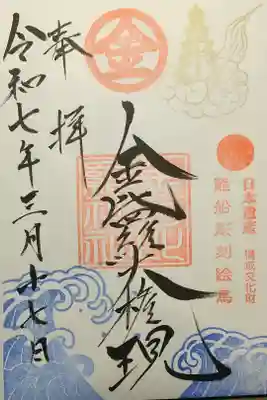 金
日本遺産 構成文化財
難船彫刻絵馬
金毘羅大権現
奉拝
令和七年三月十七日